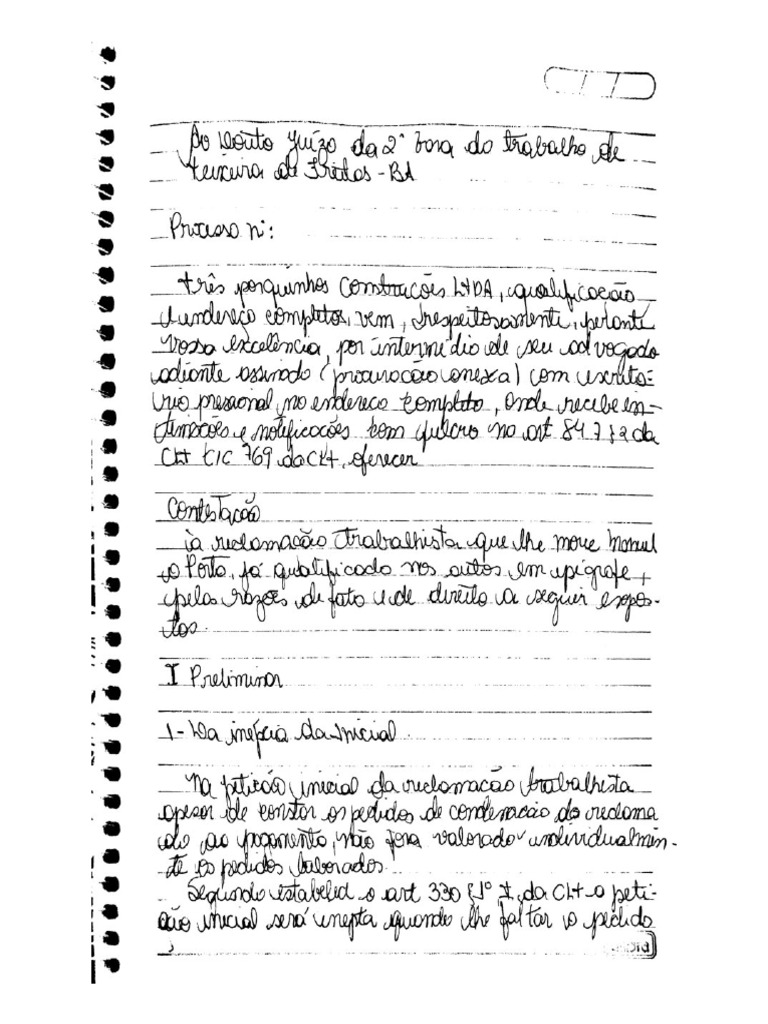 Ao Douto Juízo da 2ª Vara do trabalho de
teixeira de Freitas - BA
Processo nº:
três porquinhos Construcões LTDA, qualificação
e endereço completos, vem, respeitosamente, perante
Vossa excelência, por intermédio de seu advogado
adiante assinado (procuração anexa) com escritó-
rio presional, no endereco completo, onde recebe in-
timacões e notificacões com fulcro no art 847 § 2 da
CLT C/C 769 da CLT, oferecer
Contestacão
a reclamacão trabalhista que lhe move Manuel
o Porto, já qualificado nos autos em epígrafe,
pelas razões de fato e de direito a seguir expos-
tos.
I Preliminar
1- Da inépcia da Inicial
Na peticão inicial da reclamacão trabalhista
apesar de constar os pedidos de condenacão do reclama
do ao pagamento, não fora valorado individualmin-
te os pedidos laborados.
Segundo estabelid o art 330 § 1º I, da CLT a peti-
cão inicial será inepta quando lhe faltar o pedido